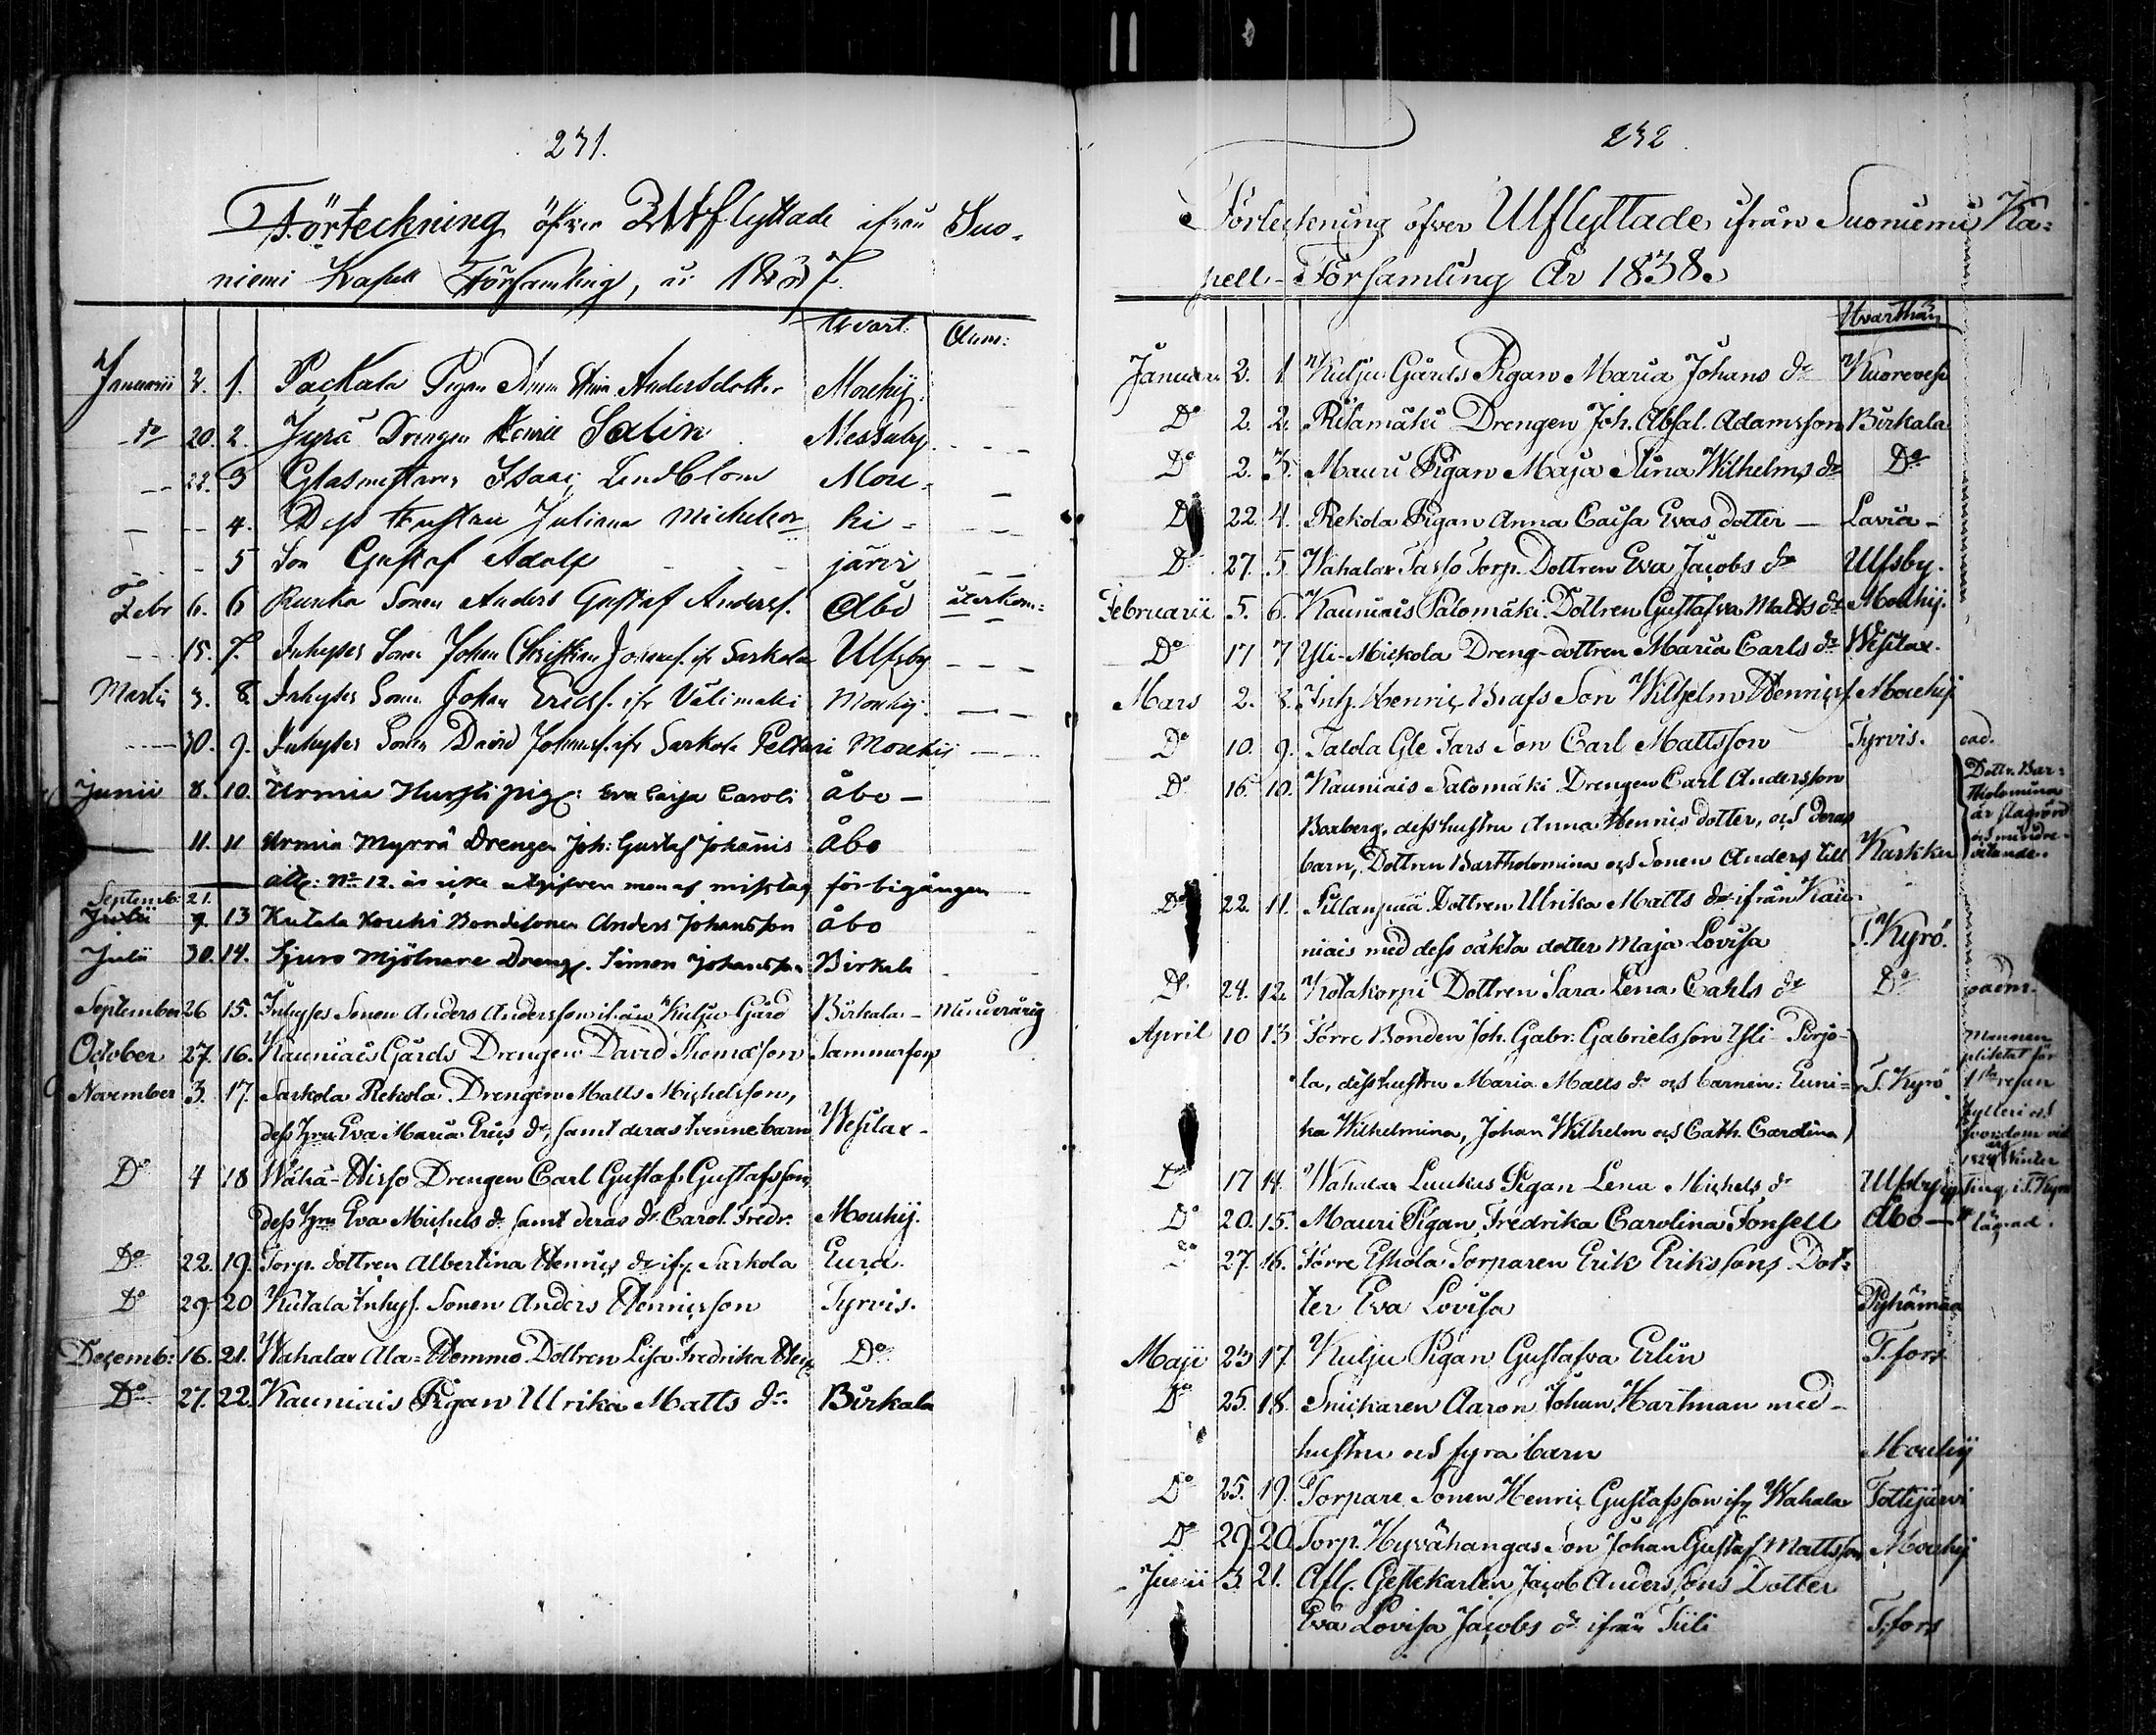 231.
Förteckning öfver Utflyttade ifrån Suo-
niemi Kapell Församling, år 1837.
Hvart. Anm:
Januarii 2. 1. Packala Pigan Anna Stina Andersdotter Mouhij.
Do 20. 2. Jyrä Drengen Henric Salin Messuby
22. 3 Glasmestaren Isaac Lindblom Mou-
4. Dess hustru Juliana Michelsdr hi-
5 Son Gustaf Adolf järvi
Febr 6. 6 Runka Sonen Anders Gustaf Anderss. Åbo återkom:
15. 7. Inhyses Sonen Johan Christian Johanss. ifr Sarkola Ulfsby
Martii 3. 8. Inhyses Sonen Johan Ericss. ifr Välimäki Mouhij.
30. 9. Inhyses Sonen David Johanss. ifr Sarkola Peltari Mouhij
Junii 8. 10. Urmia Hursti pig: Eva Caisa Caroli Åbo -
11. 11 Urmia Myrrä Drengen Joh: Gustaf Johannis Åbo
att: No 12. är icke utgifven men af misstag förbigången
Septemb: 21.
Julii 9. 13 Kutala Kouhi Bondesonen Anders Johansson Åbo
Julii 30. 14. Sjuro Mjölnare Dreng. Simon Johansson Birkala
September 26 15. Inhyses Sonen Anders Andersson ifrån Kulju Gård Birkala - Minderårig
October 27. 16. Kauniais Gårds Drengen David Thomasson Tammerfors
November 3. 17. Sarkola Rekola Drengen Matts Michelsson,
dess hru Eva Maria Erics dr, samt deras tvenne barn Wesilax -
Do 4 18 Wähä-Hirso Drengen Carl Gustaf Gustafsson,
dess hru Eva Michels dr samt deras dr Carol. Fredr. Mouhij.
Do 22. 19. Torp. dottren Albertina Henrics dr ifr. Sarkola Eura.
Do 29. 20 Kutala Inhys. Sonen Anders Henricsson Tyrvis.
Decemb: 16. 21. Wahalax Ala-Hemmo Dottren Lisa Fredrika Do
Do 27. 22. Kauniais Pigan Ulrika Matts dr. Birkala
232.
Förteckning öfver Utflyttade ifrån Suoniemi Ka-
pell-Församling År 1838.
Hvarthän
Januari 2. 1 Kulju Gårds Pigan Maria Johans dr Kuorevesi
Do 2. 2. Ritamäki Drengen Joh. Absal. Adamsson Birkala
Do 2. 3. Mauri Pigan Maja Stina Wilhelms dr Do
Do 22. 4. Rekola Pigan Anna Caisa Evas dotter - Lavia -
Do 27. 5. Wahalax Sasso Torp. Dottren Eva Jacobs dr Ulfsby.
Februarii 5. 6. Kauniais Salomäki Dottren Gustafva Matts dr Mouhij.
Do 17 7 Yli-Mickola Dreng-dottren Maria Carls dr Wesilax.
Mars 2. 8. Inh. Henric Brafs Son Wilhelm Henricss Mouhij
Do 10. 9. Talola Gle Fars Son Carl Mattsson Tyrvis. oad.
Do 16. 10. Kauniais Salomäki Drengen Carl Andersson
Boxberg, dess hustru Anna Henrics dotter, och deras
barn, Dottren Bartholomina och Sonen Anders till Karkku
Dottr. Bar-
tholomina
är flagrörd
och mindre
vetande.
Do 22. 11. Sillanpää Dottren Ulrika Matts dr ifrån Kau-
niais med dess oäkta dotter Maja Lovisa T. Kyrö.
Do 24. 12. Kotakorpi Dottren Sara Lena Carls dr Do oadm.
April 10 13 Förre Bonden Joh. Gabr. Gabrielsson Yli-Pirjo-
la, dess hustru Maria Matts dr och barnen: Euni-
ka Wilhelmina, Johan Wilhelm och Cath. Carolina T. Kyrö
Mannen
pliktat för
1sta resan
fylleri och
svordom vid
1824 års Vinter
ting i T. Kyrö
lagrad.
Do 17 14. Wahalax Luukas Pigan Lena Michels dr Ulfsby
Do 20. 15. Mauri Pigan Fredrika Carolina Fonsell Åbo -
Do 27. 16. Förre Eskola Torparen Erik Erikssons Dot-
ter Eva Lovisa Pyhämaa
Maji 23 17. Kulju Pigan Gustafva Erlin T.fors
Do 25. 18. Snickaren Aaron Johan Hartman med
hustru och fyra barn Mouhij
Do 25. 19. Torpare Sonen Henric Gustafsson ifr. Wahalax Tottijärvi
Do 29. 20. Torp. Hyvähangas Son Johan Gustaf Mattsson Mouhij
Junii 3. 21. Afl. Gestekarlen Jacob Anderssons Dotter
Eva Lovisa Jacobs dr ifrån Tiili T.fors